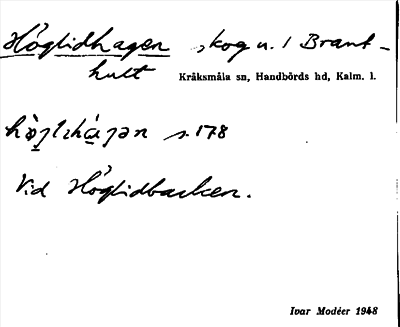 Höglidhagen skog u. 1 Brant-
hult Kråksmåla sn, Handbörds hd, Kalm. l.
s. 178
Vid Höglidbacken.
Ivar Modéer 1948